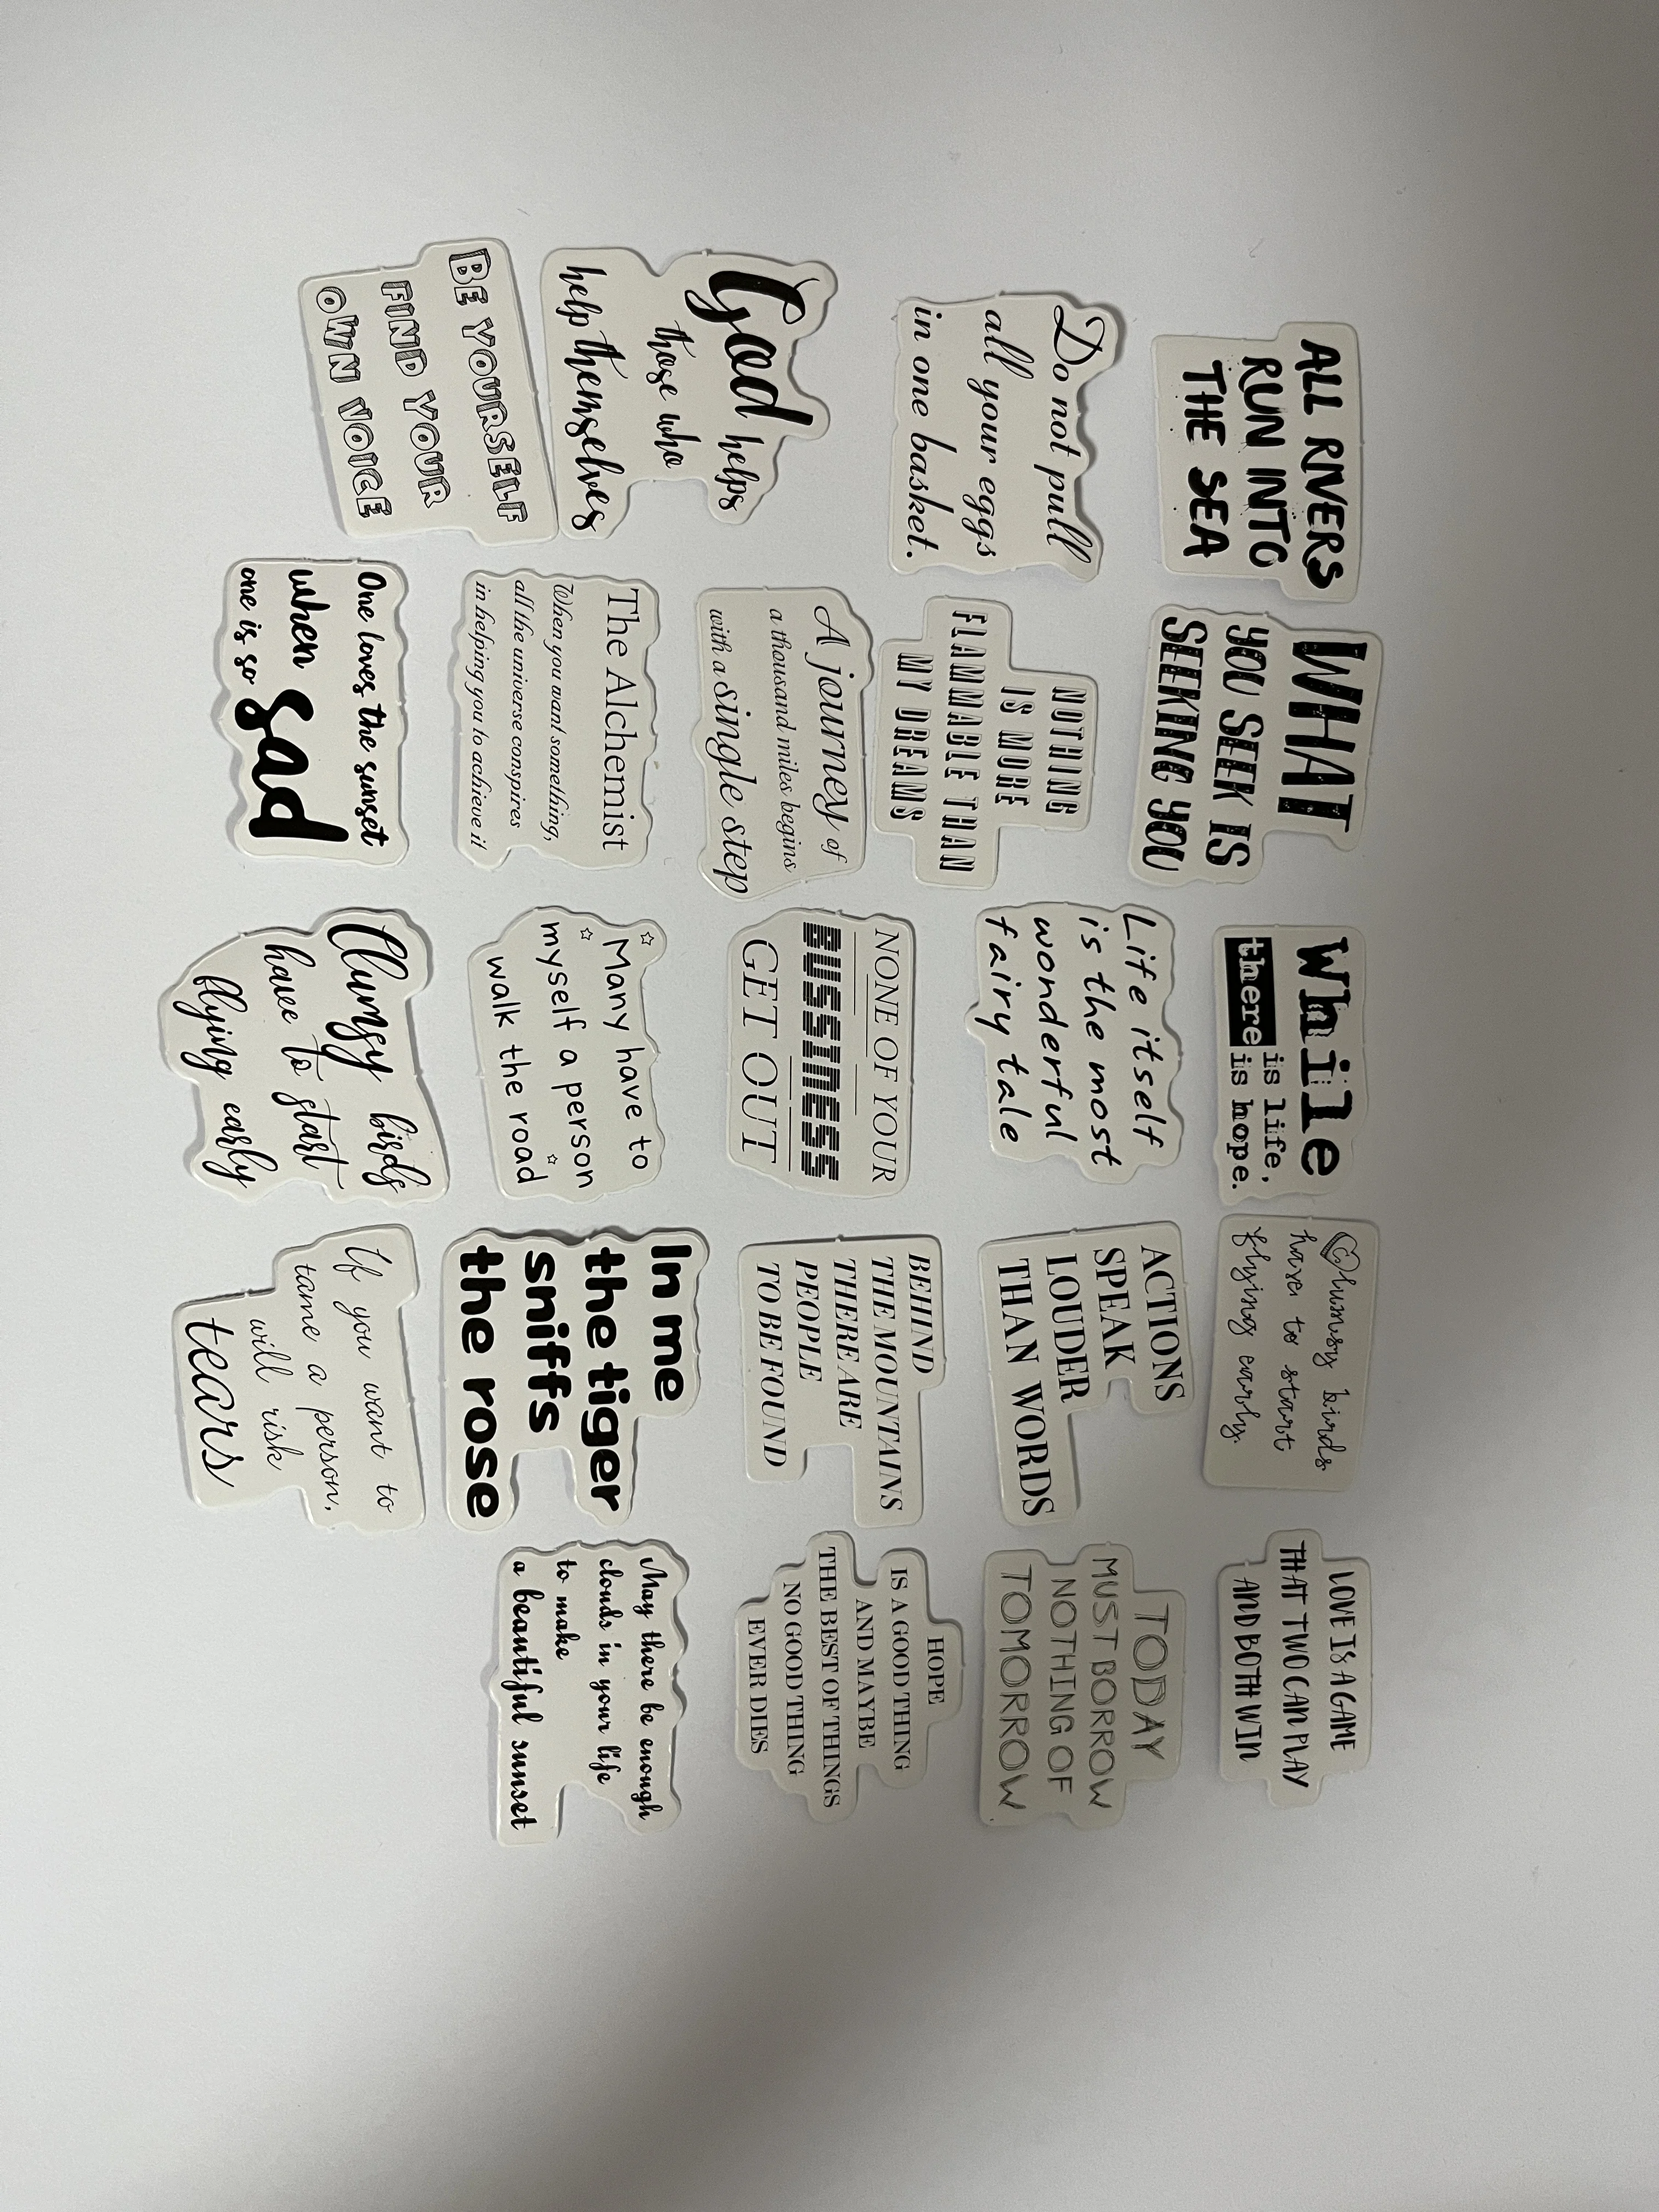 ALL RIVERS
RUN INTO
THE SEA
WHAT
YOU SEEK IS
SEEKING YOU
While
there is life,
is hope.
Clumsy birds
have to start
flying early.
LOVE IS A GAME
THAT TWO CAN PLAY
AND BOTH WIN
Do not pull
all your eggs
in one basket.
NOTHING
IS MORE
FLAMMABLE THAN
MY DREAMS
Life itself
is the most
wonderful
fairy tale
ACTIONS
SPEAK
LOUDER
THAN WORDS
TODAY
MUST BORROW
NOTHING OF
TOMORROW
God helps
those who
help themselves
A journey of
a thousand miles begins
with a single step
NONE OF YOUR
BUSSINESS
GET OUT
BEHIND
THE MOUNTAINS
THERE ARE
PEOPLE
TO BE FOUND
HOPE
IS A GOOD THING
AND MAYBE
THE BEST OF THINGS
NO GOOD THING
EVER DIES
BE YOURSELF
FIND YOUR
OWN VOICE
The Alchemist
When you want something,
all the universe conspires
in helping you to achieve it
Many have to
myself a person
walk the road
In me
the tiger
sniffs
the rose
May there be enough
clouds in your life
to make
a beautiful sunset
One loves the sunset
when
one is so sad
Clumsy birds
have to start
flying early
If you want to
tame a person,
will risk
tears